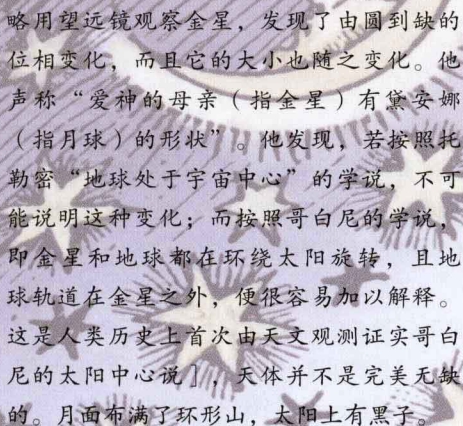 略用望远镜观察金星，发现了由圆到缺的
位相变化，而且它的大小也随之变化。他
声称“爱神的母亲（指金星）有黛安娜
（指月球）的形状”。他发现，若按照托
勒密“地球处于宇宙中心”的学说，不可
能说明这种变化；而按照哥白尼的学说，
即金星和地球都在环绕太阳旋转，且地
球轨道在金星之外，便很容易加以解释。
这是人类历史上首次由天文观测证实哥白
尼的太阳中心说］，天体并不是完美无缺
的。月面布满了环形山，太阳上有黑子。